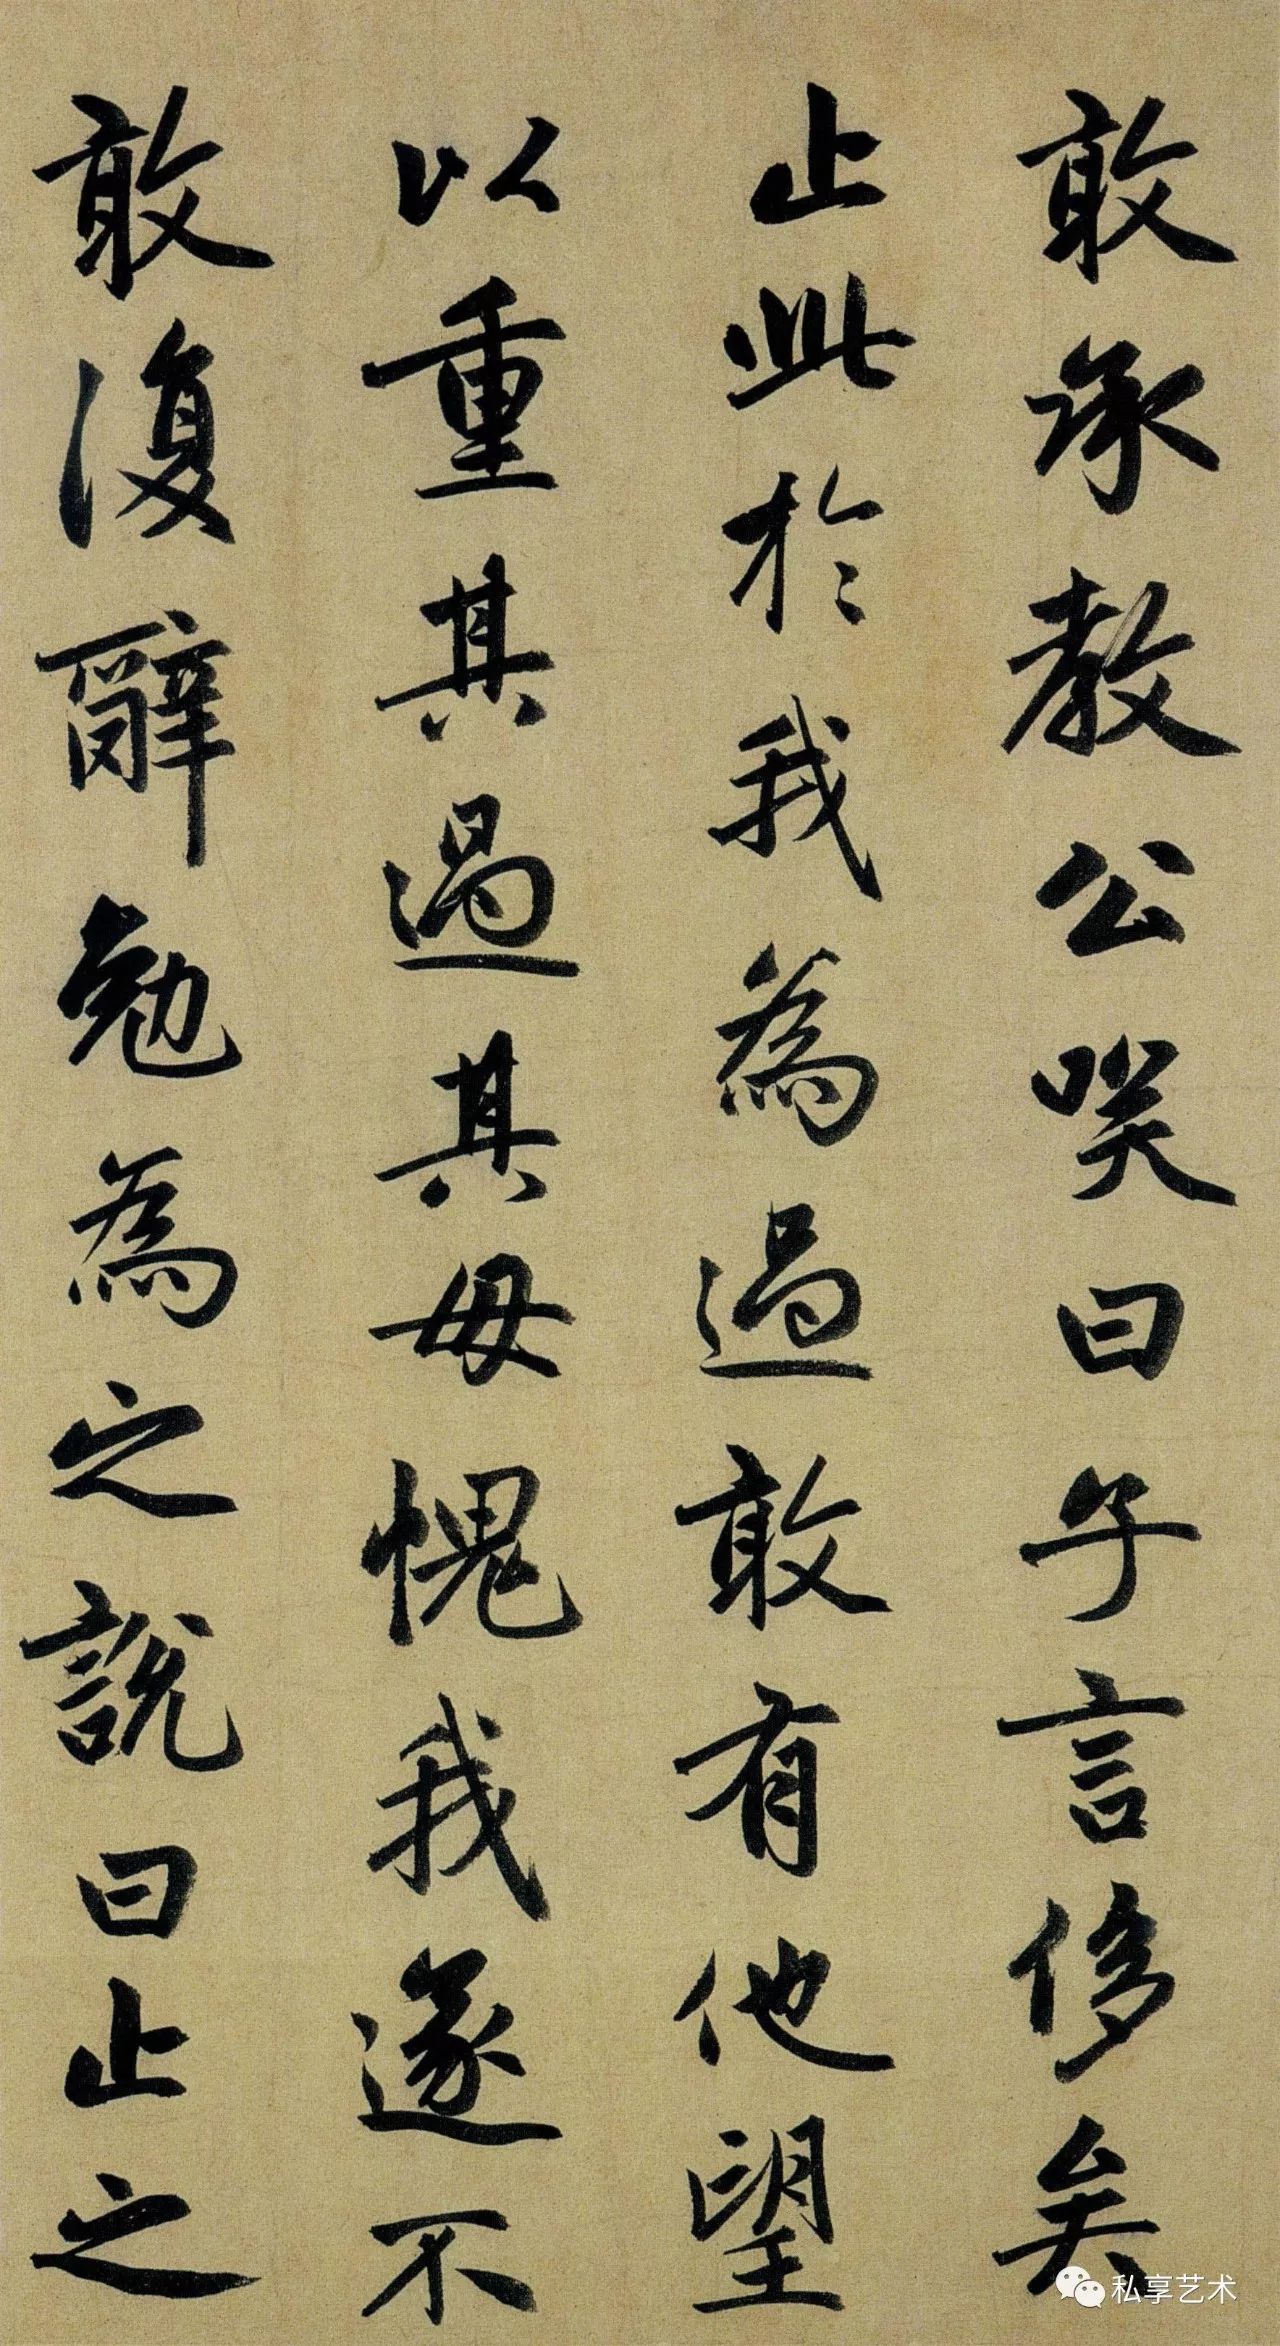 敢承教公笑曰子言侈矣
止此於我為過敢有他望
以重其過其毋愧我遂不
敢復辭勉為之說曰止之
私享艺术